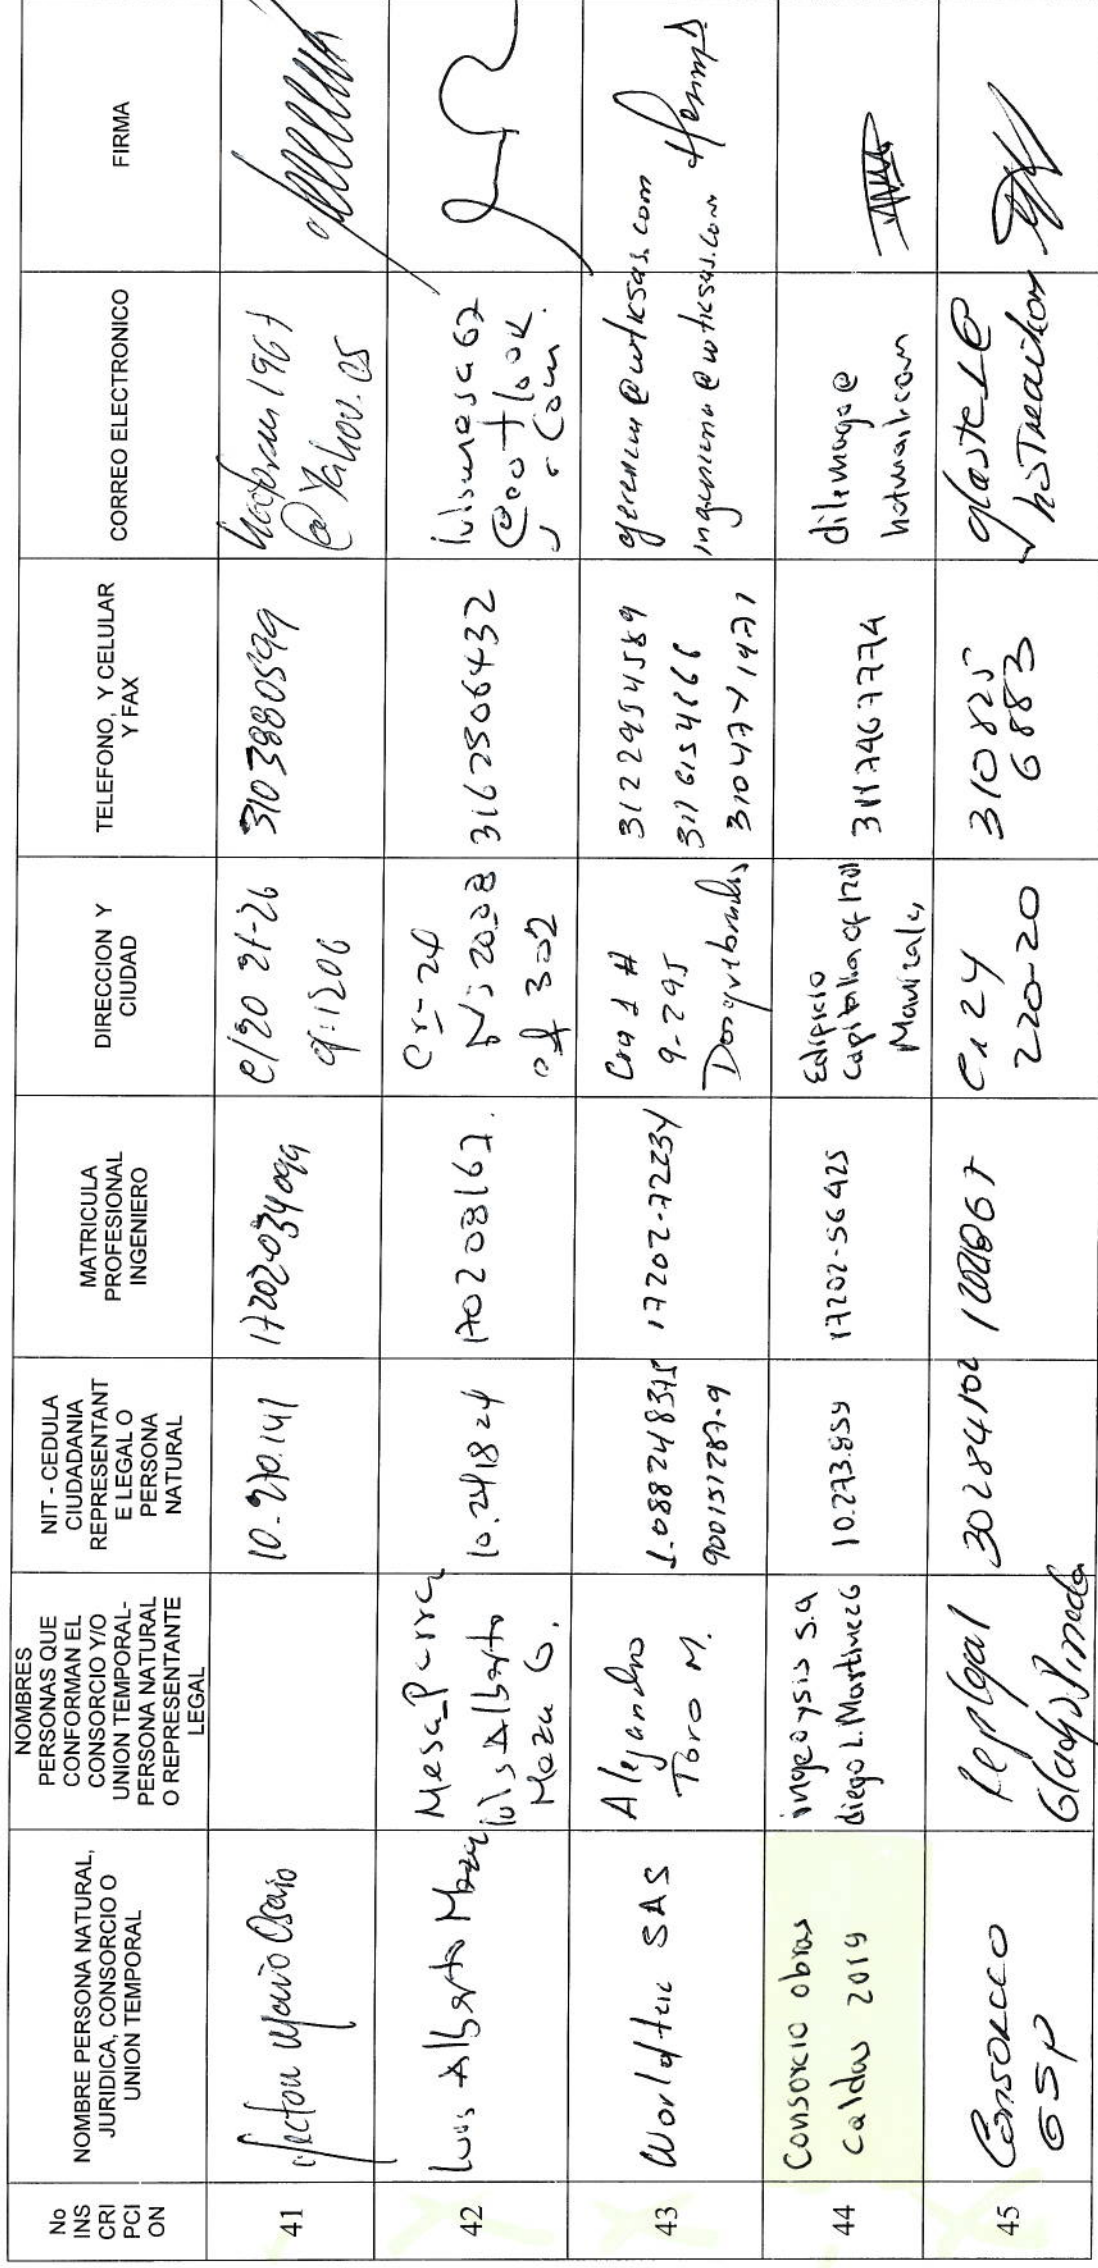 No
INS
CRI
PCI
ON
NOMBRE PERSONA NATURAL,
JURIDICA, CONSORCIO O
UNION TEMPORAL
NOMBRES
PERSONAS QUE
CONFORMAN EL
CONSORCIO Y/O
UNION TEMPORAL-
PERSONA NATURAL
O REPRESENTANTE
LEGAL
NIT - CEDULA
CIUDADANIA
REPRESENTANT
E LEGAL O
PERSONA
NATURAL
MATRICULA
PROFESIONAL
INGENIERO
DIRECCION Y
CIUDAD
TELEFONO, Y CELULAR
Y FAX
CORREO ELECTRONICO
FIRMA
41
Mario Osorio
10-270.141
17202-034099
cl 20 21-26
of:1206
3103880599
@Yahoo.es
42
Luis Alberto Meza
Luis Alberto
Meza G.
10.241824
170208167.
Cr-24
N: 20.08
of 302
3167506432
luismesa67
@outlook
.com
43
Worldtec SAS
Alejandro
Toro M.
1.088248375
900151287-9
17202-72234
Cra 1 #
9-295
Dosquebradas
3122954589
3176154666
gerencia@wtksas.com
ingenieria@wtksas.com
44
Consorcio obras
Caldas 2019
diego L. Martinez G
10.273.859
17202-56425
Edificio
Capitalia of 1201
Manizales
3117467774
dilemago@
hotmail.com
45
Consorcio
GSP
Rep legal
Gladys Pineda
30284102
Cr 24
220-20
310825
6883